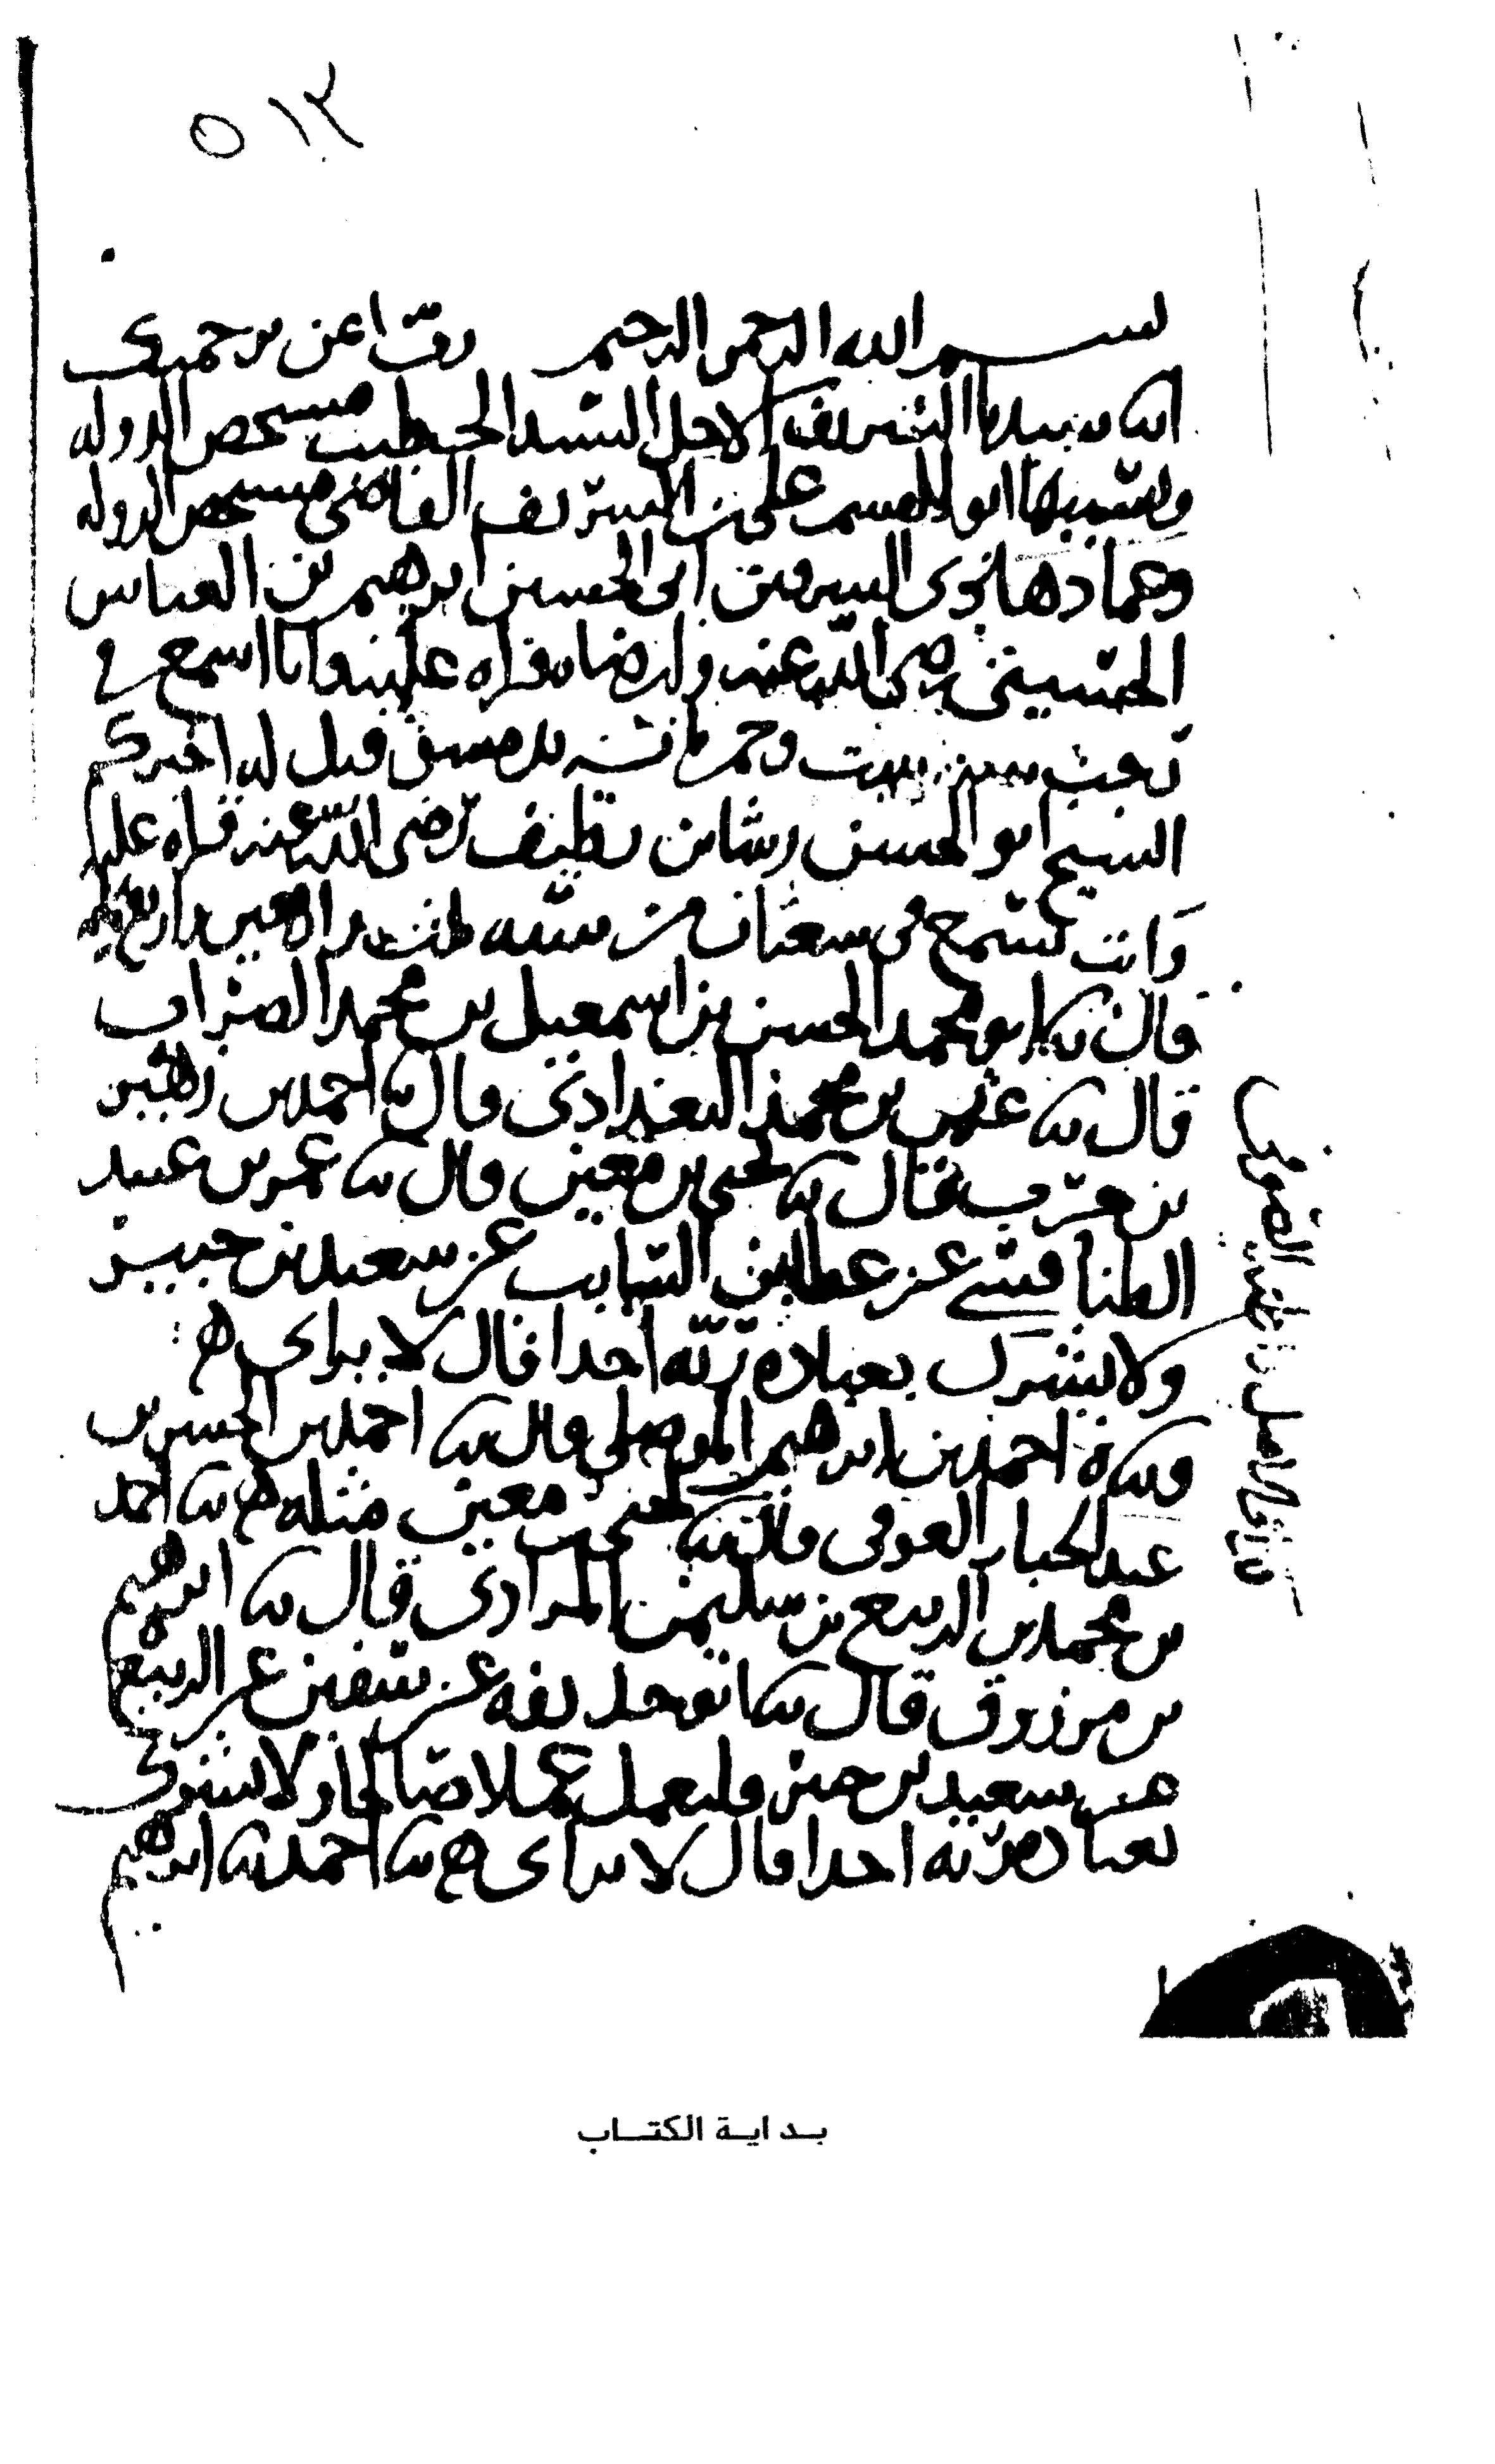 بسم الله الرحمن الرحيم رب اعن برحمتك
انبا سيدنا الشريف الاجل السيد الخطيب مستخص الدوله
ونسيبها ابو القسم على بن الشريف القاضى مستخص الدوله
وعمادها ذوى الشرفين ابى الحسين ابرهيم بن العباس
الحسينى رضى الله عنه وارضاه قراه عليه وانا اسمع فى
رجب سنه ست وخمس مائه بدمشق قيل له اخبركم
الشيخ ابو الحسن رشا بن نظيف رضى الله عنه قراه عليه
وانت تسمع فى شعبان من سنه ثلث واربعين واربع مائه
قال ثنا ابو محمد الحسن بن اسمعيل بن محمد الضراب
قال ثنا عثمن بن محمد البغدادى قال ثنا احمد بن زهير
بن حرب قال ثنا يحيى بن معين قال ثنا عمر بن عبيد
الطنافسى عن عطا بن السايب عن سعيد بن جبير
ولا يشرك بعباده ربه احدا قال لا يراى ه
وثناه احمد بن ابرهيم الموصلى قال ثنا احمد بن الحسن بن
عبد الجبار العوفى قال ثنا يحيى بن معين مثله ه ثنا احمد
بن محمد بن الربيع بن سليمن المرادى قال ثنا ابرهيم
بن مرزوق قال ثنا ابو حذيفه عن سفين عن الربيع
عن سعيد بن جبير وليعمل عملا صالحا ولا يشرك
بعباده ربه احدا قال لا يراى ه ثنا احمد ثنا ابرهيم
بداية الكتاب